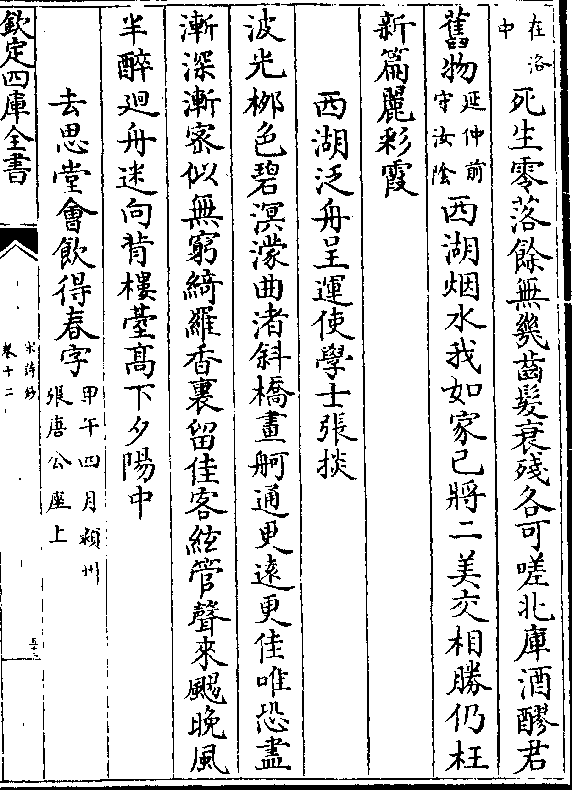 在洛
中
死生零落餘無幾齒髮衰殘各可嗟北庫酒醪君
舊物
延仲前
守汝陰
西湖烟水我如家已將二美交相勝仍枉
新篇麗彩霞
西湖泛舟呈運使學士張掞
波光栁色碧溟濛曲渚斜橋畫舸通更遠更佳唯恐盡
漸深漸宻似無窮綺羅香裏留佳客絃管聲來颺晚風
半醉迴舟迷向背樓臺髙下夕陽中
去思堂會飲得春字
甲午四月潁州
張唐公座上
欽定四庫全書
宋詩鈔
卷十二